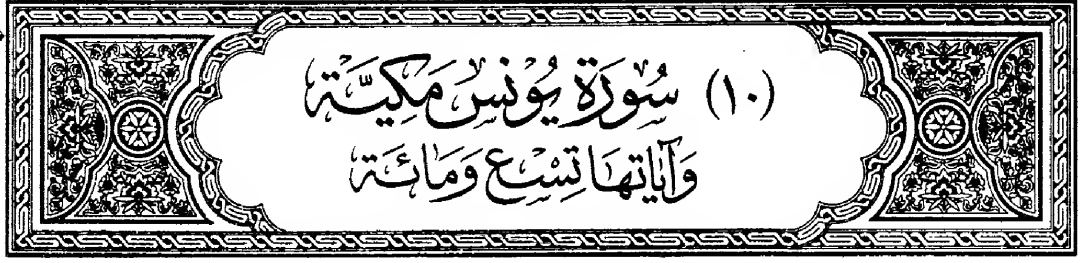 (١٠) سُورَة يُونس مَكيَّة
وَآيَاتهَا تِسْع وَمَائة